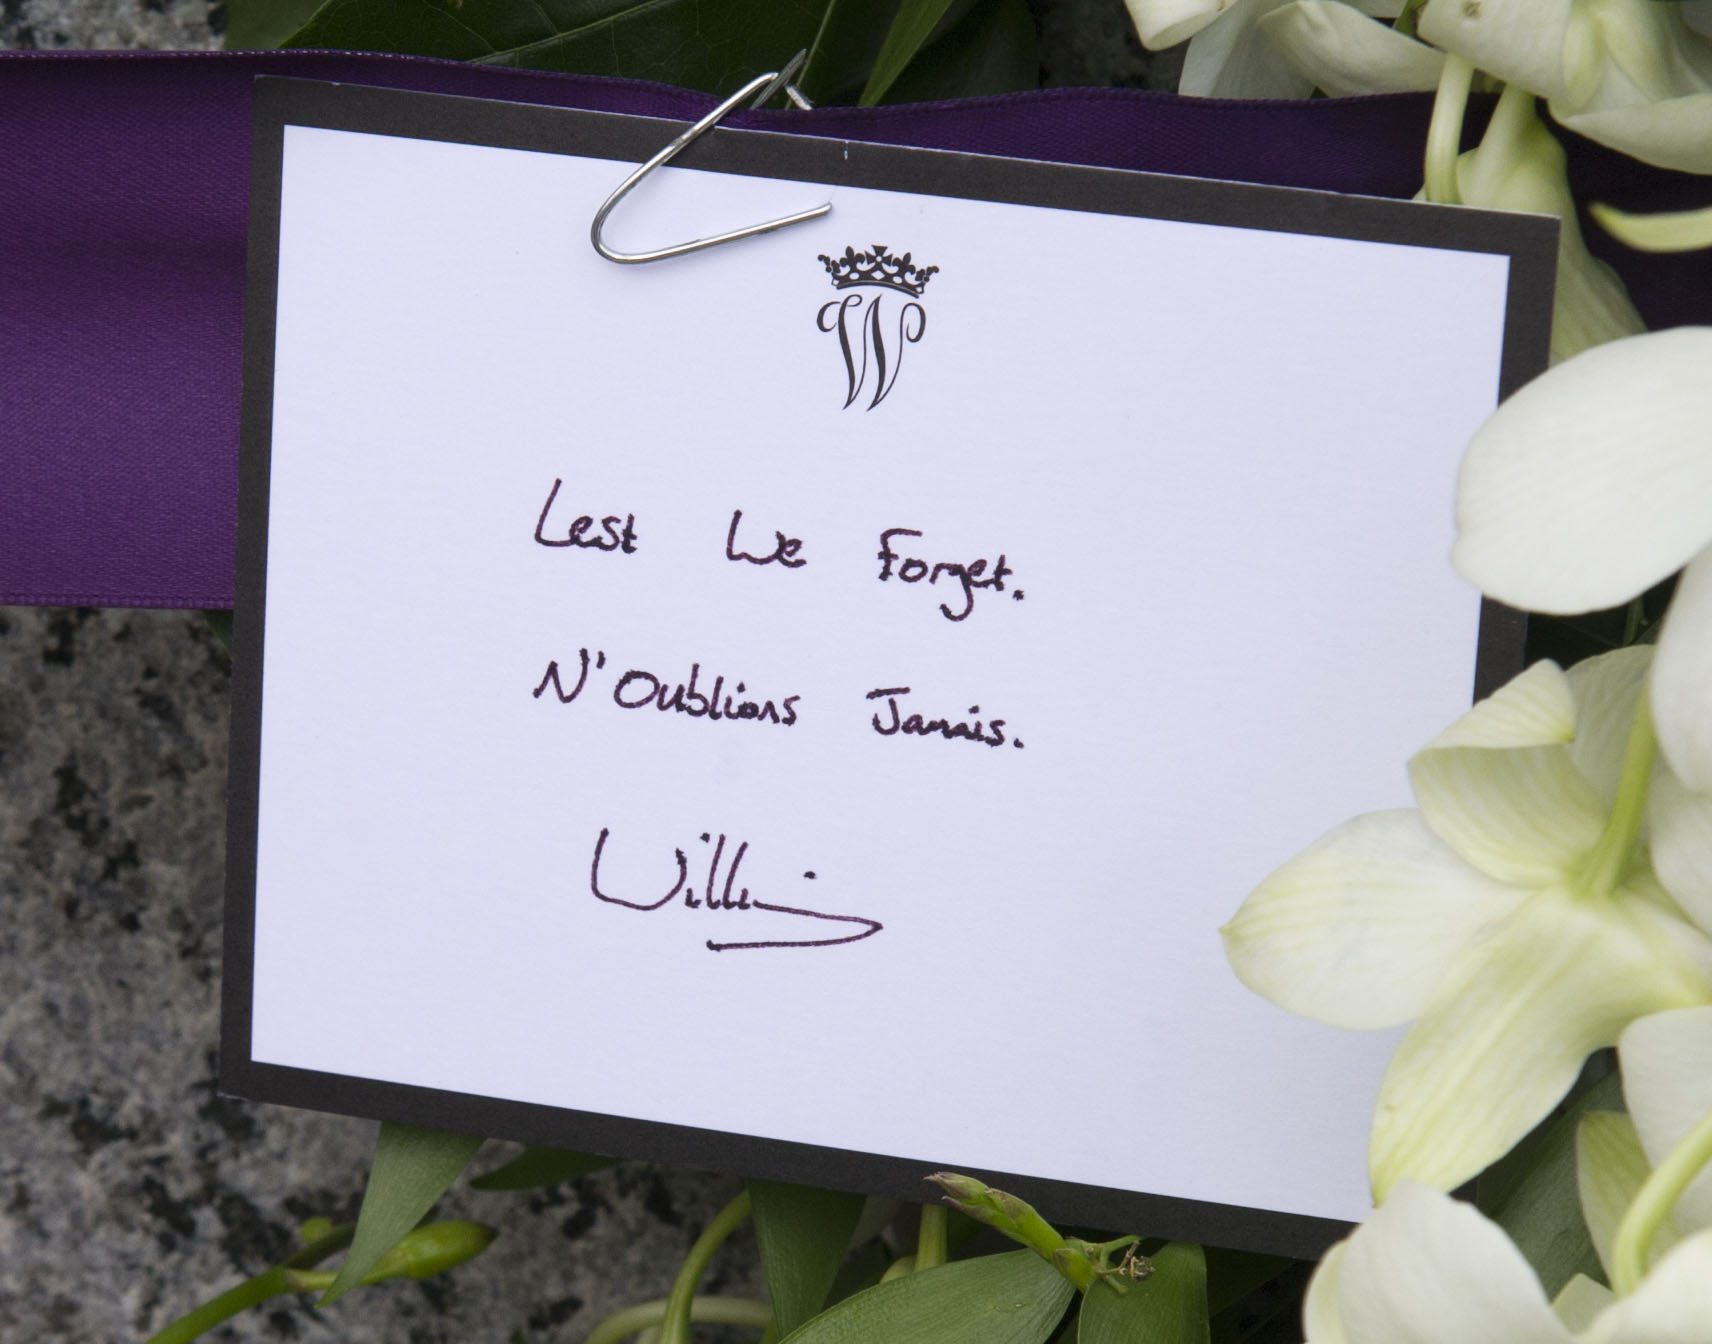 W
Lest We Forget.
N'Oublions Jamais.
William